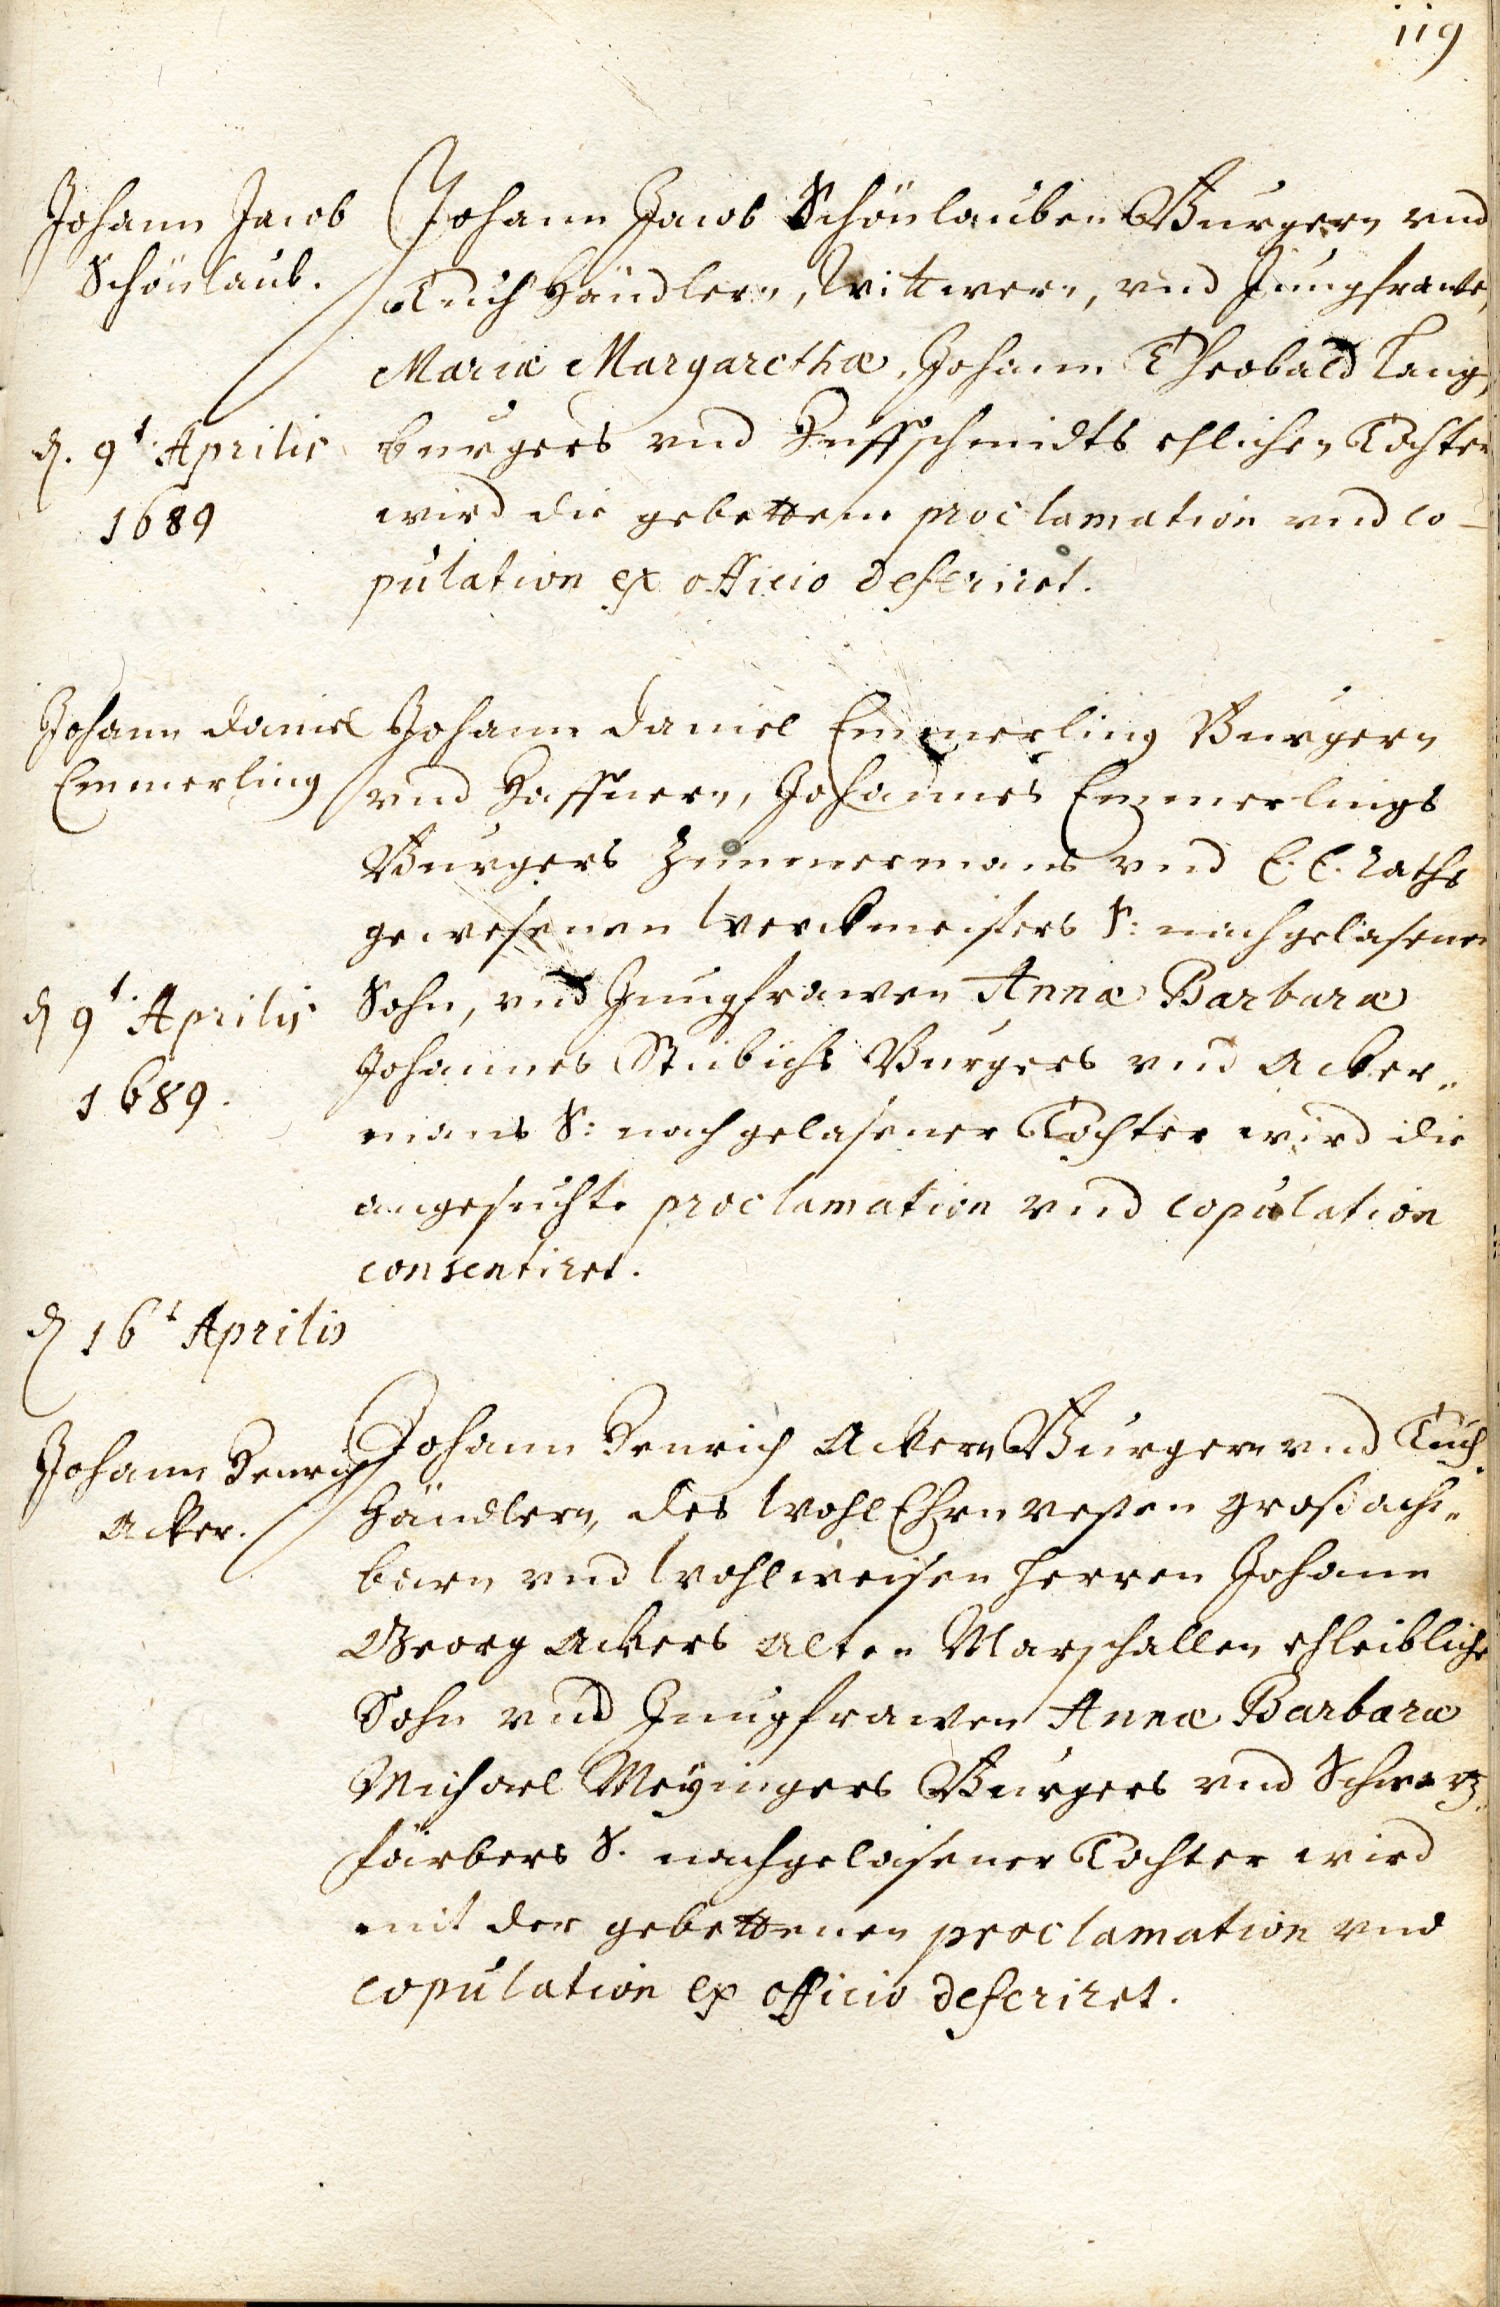 119
Johann Jacob
Schönlaub.
d. 9t Aprilis
1689
Johann Jacob Schönlauben Burgern vnd
Tuch Händlern, Wittwern, vnd Jungfrawen
Mariæ Margarethæ, Johann Theobald Lang,
burgers vnd Huffschmidts ehlichen Tochter
wird die gebettene proclamation vnd co-
pulation ex officio deferiret.
Johann Daniel
Emmerling
d 9t Aprilis
1689.
Johann Daniel Emmerling Burgern
vnd Haffnern, Johannes Emmerlings
Burgers Zimmermans vnd E. E. Raths
gewesenen Werckmeisters S: nachgelasenen
Sohn, vnd Jungfrawen Annæ Barbaræ
Johannes Stübichs Burgers vnd Acker-
mans S: nachgelasener Tochter wird die
angesuchte proclamation vnd copulation
consentiret.
d 16t Aprilis
Johann Henrich
Acker.
Johann Henrich Ackern Burgern vnd Tuch
Händlern, des WohlEhrnvesten großacht-
barn vnd Wohlweisen Herren Johann
Georg Ackers Alten Marschallen ehleiblichen
Sohn vnd Jungfrawen Annæ Barbaræ
Michael Meyingers Burgers vnd Schwartz-
färbers S. nachgelasener Tochter wird
mit der gebettenen proclamation vnd
copulation ex officio deferiret.